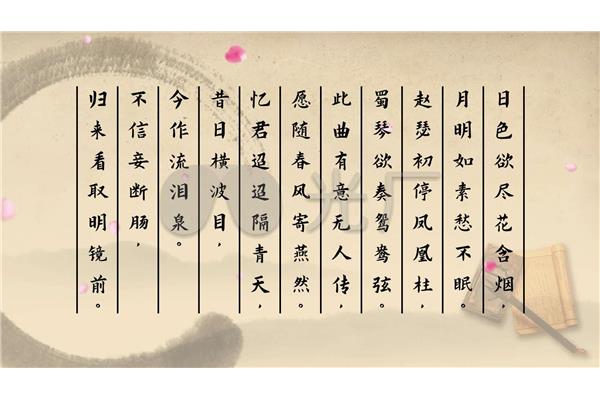 日色欲尽花含烟，
月明如素愁不眠。
赵瑟初停凤凰柱，
蜀琴欲奏鸳鸯弦。
此曲有意无人传，
愿随春风寄燕然。
忆君迢迢隔青天，
昔日横波目，
今作流泪泉。
不信妾断肠，
归来看取明镜前。
光厂